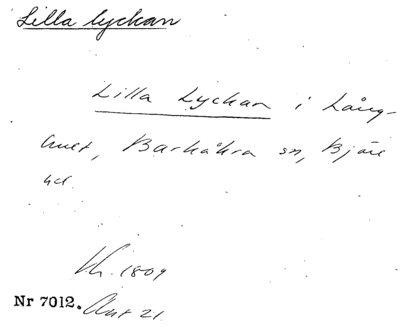 Lilla lyckan
Lilla Lyckan i Lång-
hult, Barkåkra sn, Bjäre
hd.
1809
Nr 7012. Akt 21